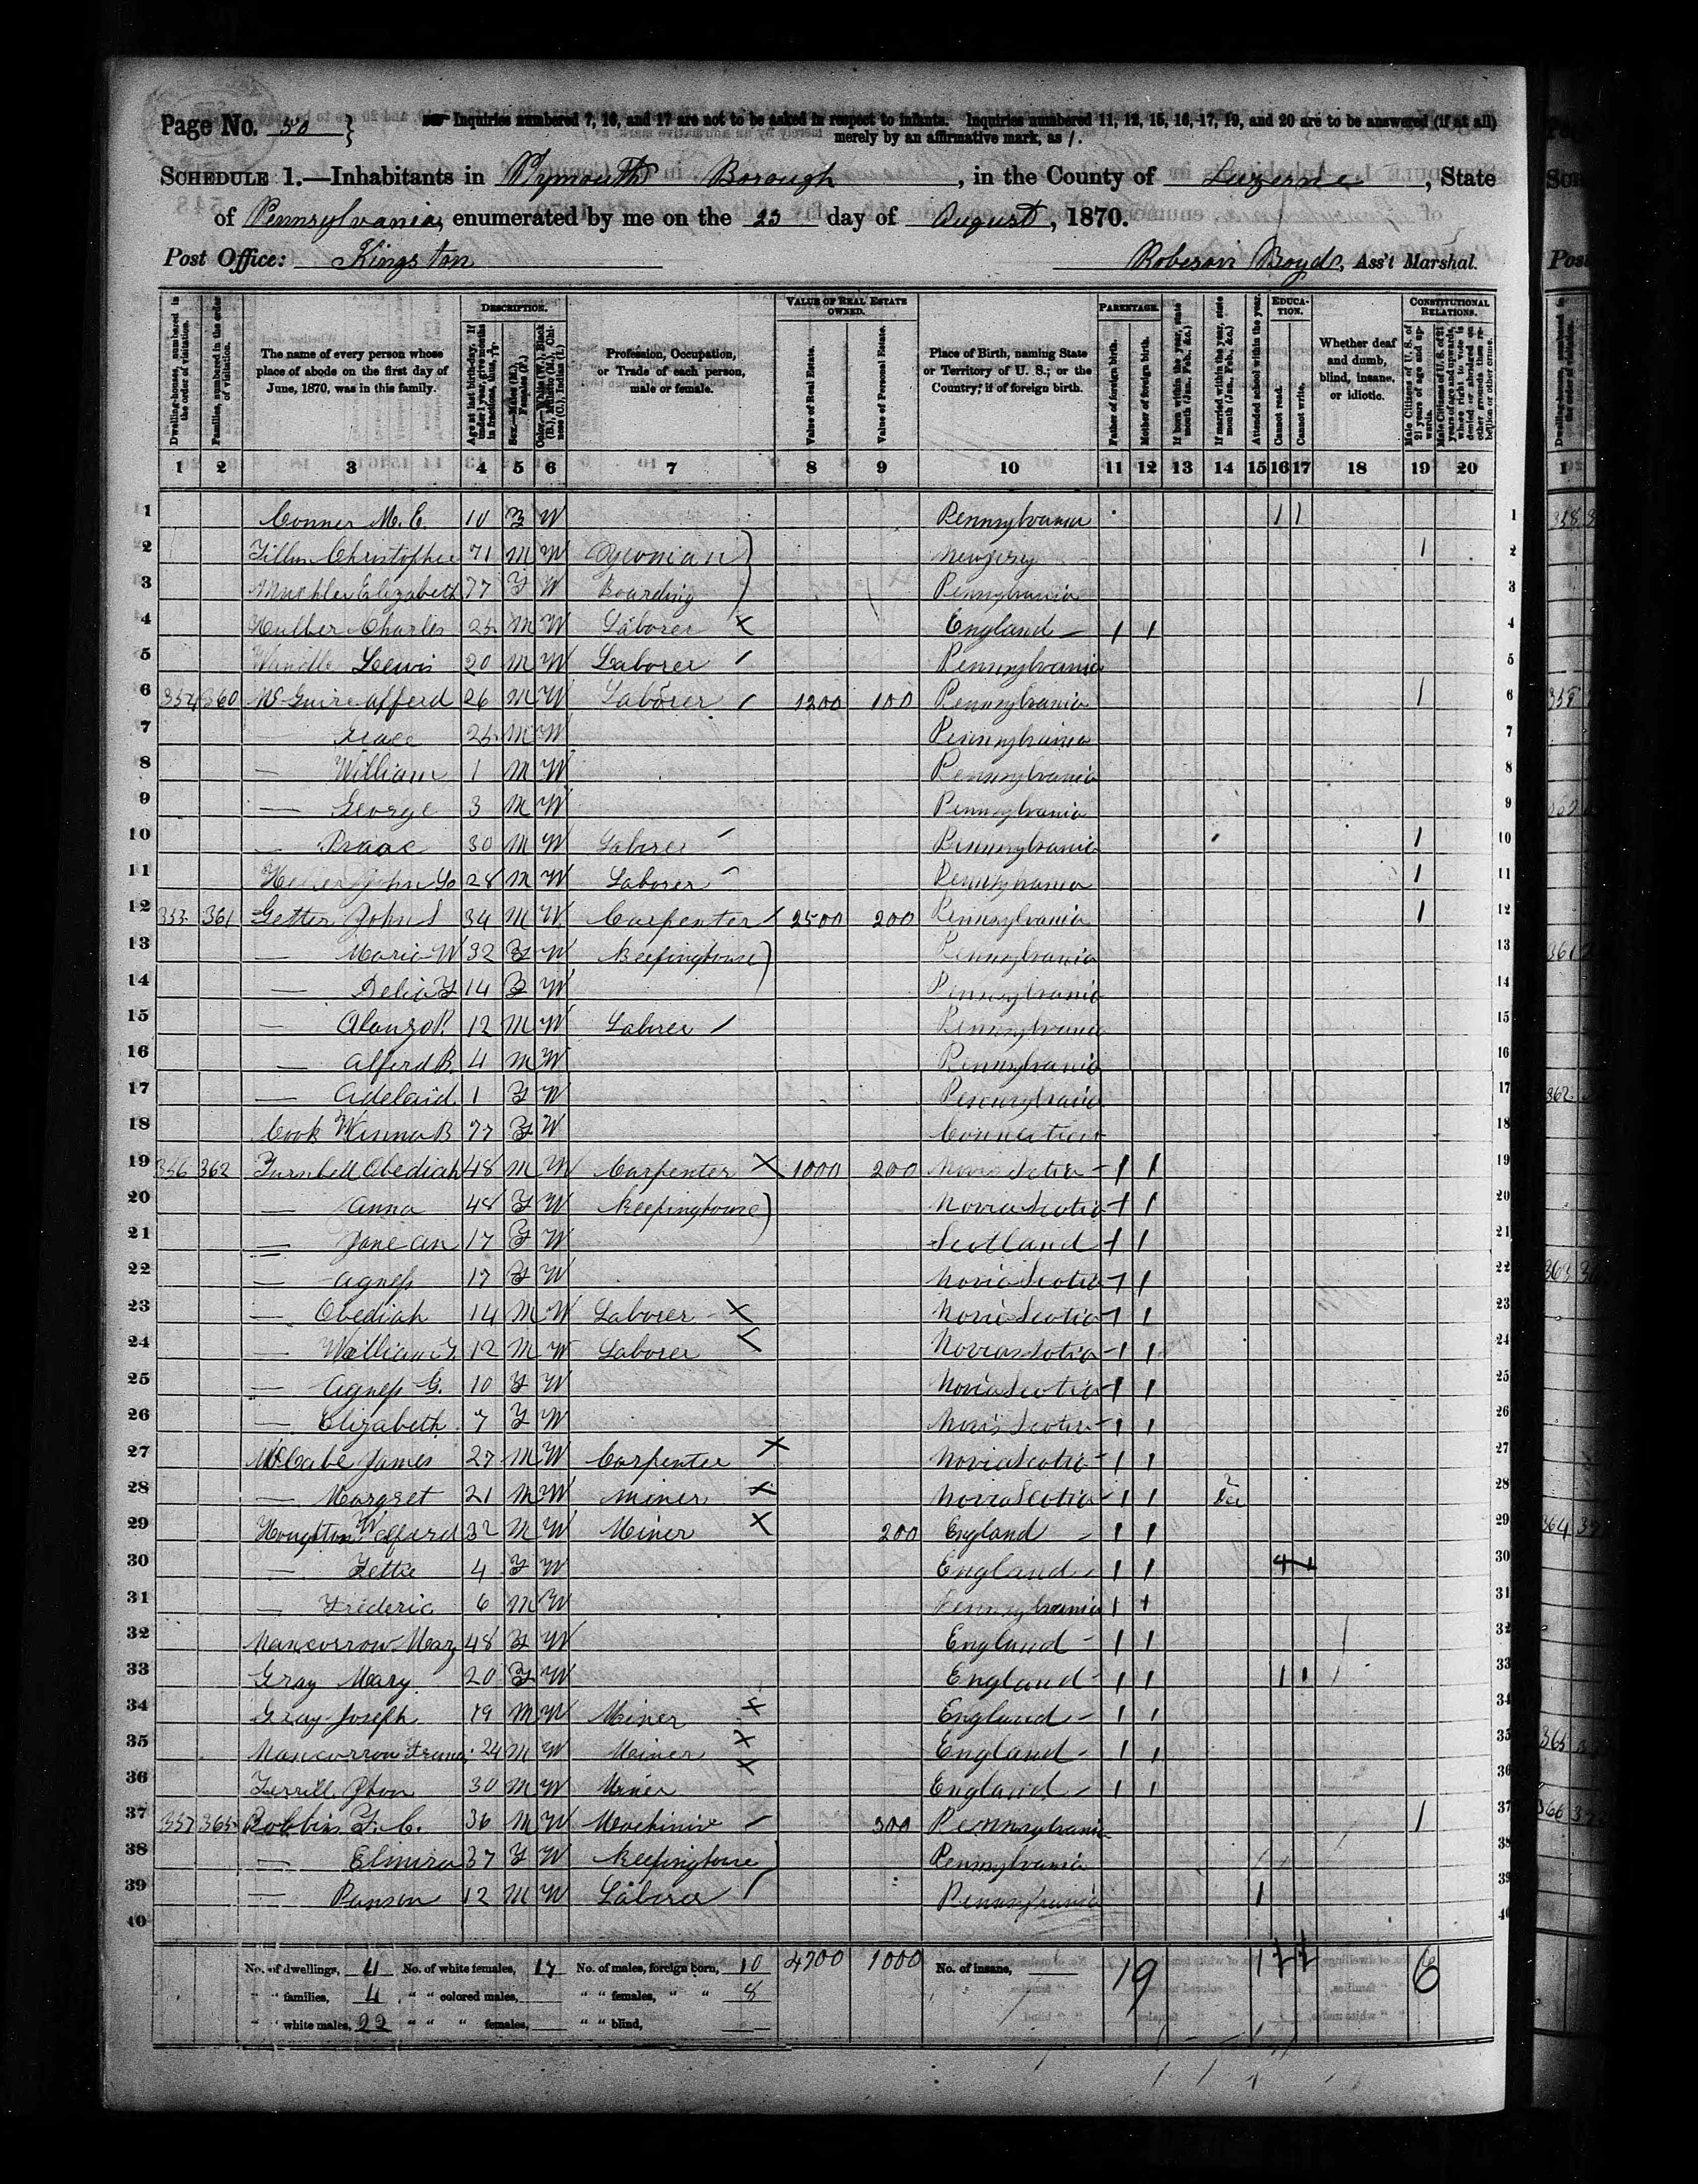 Page No. 50 }
Inquiries numbered 7, 16, and 17 are not to be asked in respect to infants. Inquiries numbered 11, 12, 15, 16, 17, 19, and 20 are to be answered (if at all)
merely by an affirmative mark, as /.
SCHEDULE 1.—Inhabitants in Plymouth Borough, in the County of Luzerne, State
of Pennsylvania, enumerated by me on the 23 day of August, 1870.
Post Office: Kingston
Robeson Boyd, Ass't Marshal.
Dwelling-houses, numbered in the order of visitation.
Families, numbered in the order of visitation.
The name of every person whose place of abode on the first day of June, 1870, was in this family.
DESCRIPTION.
Age at last birth-day. If under 1 year, give months in fractions, thus, 
Sex.—Males (M.), Females (F.)
Color.—White (W.), Black (B.), Mulatto (M.), Chinese (C.), Indian (I.)
Profession, Occupation, or Trade of each person, male or female.
VALUE OF REAL ESTATE OWNED.
Value of Real Estate.
Value of Personal Estate.
Place of Birth, naming State or Territory of U. S.; or the Country, if of foreign birth.
PARENTAGE.
Father of foreign birth.
Mother of foreign birth.
If born within the year, state month (Jan., Feb., &c.)
If married within the year, state month (Jan., Feb., &c.)
Attended school within the year.
EDUCATION.
Cannot read.
Cannot write.
Whether deaf and dumb, blind, insane, or idiotic.
CONSTITUTIONAL RELATIONS.
Male Citizens of U. S. of 21 years of age and upwards.
Male Citizens of U. S. of 21 years of age and upwards, whose right to vote is denied or abridged on other grounds than rebellion or other crime.
1 2 3 4 5 6 7 8 9 10 11 12 13 14 15 16 17 18 19 20
1 Conner M. E. 10 F W Pennsylvania 1 1 1
2 Christopher 71 M W New Jersey 1 2
3 Elizabeth 77 F W Boarding Pennsylvania 3
4 Charles 25 M W Laborer X England 1 1 4
5 Lewis 20 M W Laborer / Pennsylvania 5
6 360 McGuire Afferd 26 M W Laborer / 1200 100 Pennsylvania 1 6
7 25 M W Pennsylvania 7
8 — William 1 M W Pennsylvania 8
9 — George 3 M W Pennsylvania 9
10 — Isaac 30 M W Laborer / Pennsylvania 1 10
11 John 28 M W Laborer / Pennsylvania 1 11
12 361 Getter John S 34 M W Carpenter / 2500 200 Pennsylvania 1 12
13 — Maria W 32 F W Keepinghouse Pennsylvania 13
14 — Delia F 14 F W Pennsylvania 14
15 — Alonzo P. 12 M W Laborer / Pennsylvania 15
16 — Alferd B. 4 M W Pennsylvania 16
17 — Adelaid 1 F W Pennsylvania 17
18 Cook B 77 F W 18
19 356 362 Turnbell Obediah 48 M W Carpenter X 1000 200 Novia Scotia 1 1 19
20 — Anna 48 F W Keepinghouse Novia Scotia 1 1 20
21 — Jane An 17 F W Scotland 1 1 21
22 — Agness 17 F W Novia Scotia 1 1 22
23 — Obediah 14 M W Laborer X Novia Scotia 1 1 23
24 — William 12 M W Laborer X Novia Scotia 1 1 24
25 — Agness G. 10 F W Novia Scotia 1 1 25
26 — Elizabeth 7 F W Novia Scotia 1 1 26
27 McCabe James 27 M W Carpenter X Novia Scotia 1 1 27
28 — Margret 21 M W Miner X Novia Scotia 1 1 28
29 Houghton 32 M W Miner X 200 England 1 1 29
30 — Lettie 4 F W England 1 1 30
31 — Frederic 6 M W Pennsylvania 1 1 31
32 Mancorrow Mary 48 F W England 1 1 32
33 Gray Mary 20 F W England 1 1 1 1 33
34 Gray Joseph 19 M W Miner X England 1 1 34
35 Mancorrow 24 M W Miner X England 1 1 35
36 Terrill Jhon 30 M W Miner X England 1 1 36
37 357 365 Robbins F. C. 36 M W 300 Pennsylvania 1 37
38 — Elmira 37 F W Keepinghouse Pennsylvania 38
39 — 12 M W Laborer / Pennsylvania 1 39
40
No. of dwellings, 4 No. of white females, 17 No. of males, foreign born, 10 4700 1000 No. of insane, 19 6
" " families, 4 " " colored males, " " females, " " 8
" " white males, 22 " " " females, " " blind,